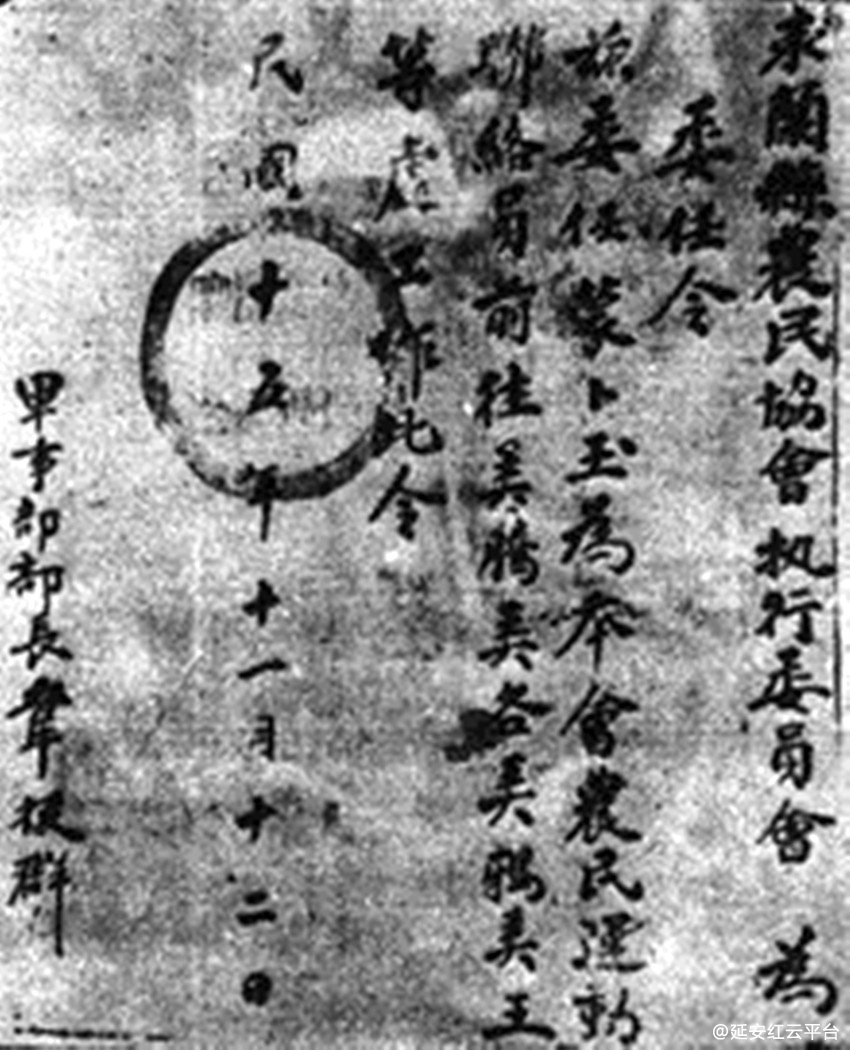 東蘭縣農民協會执行委員會 為
委任令
茲委任蒙卜玉為本會農民運動
聯絡員前往美腾美谷美鴉美王
等處工作此令
民國十五年十一月十二日
軍事部部長韋拔群
@延安红云平台